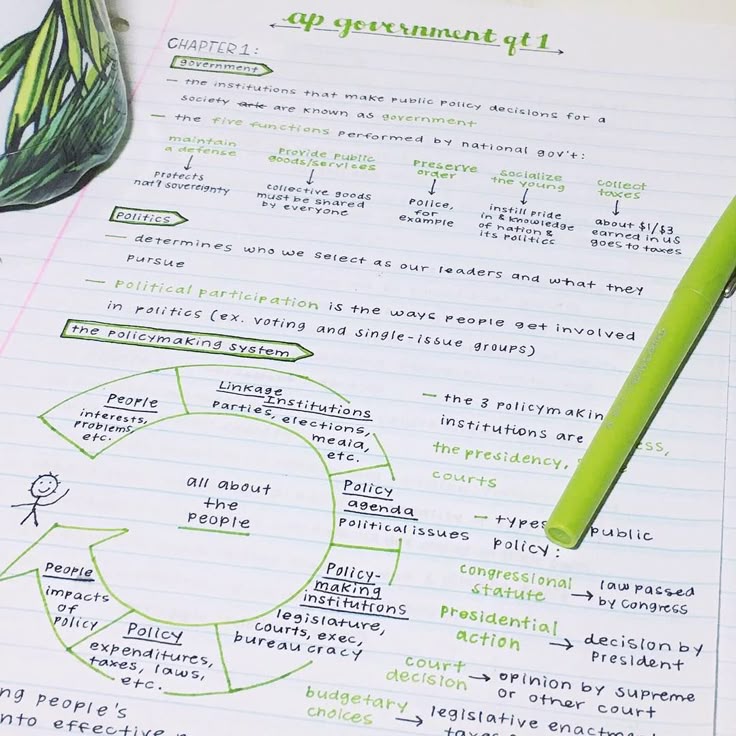 ap government qt 1
CHAPTER 1:
government
— the institutions that make public policy decisions for a
society are known as government
— the five functions performed by national gov't:
maintain
a defense
↓
protects
nat'l sovereignty
provide public
goods/services
↓
collective goods
must be shared
by everyone
preserve
order
↓
police,
for
example
socialize
the young
↓
instill pride
in & knowledge
of nation &
its politics
collect
taxes
↓
about $1/$3
earned in US
goes to taxes
politics
— determines who we select as our leaders and what they
pursue
— political participation is the ways people get involved
in politics (ex. voting and single-issue groups)
the policymaking system
People
interests,
problems,
etc.
Linkage
Institutions
parties, elections,
media,
etc.
Policy
agenda
Political issues
Policy-
making
institutions
legislature,
courts, exec,
bureaucracy
Policy
expenditures,
taxes, laws,
etc.
People
impacts
of
policy
all about
the
people
— the 3 policymakin
institutions are ess,
the presidency,
courts
— types public
policy:
congressional
statute → law passed
by congress
presidential
action → decision by
President
court
decision → opinion by supreme
or other court
budgetary
choices → legislative enactm
taxes
ng people's
nto effective